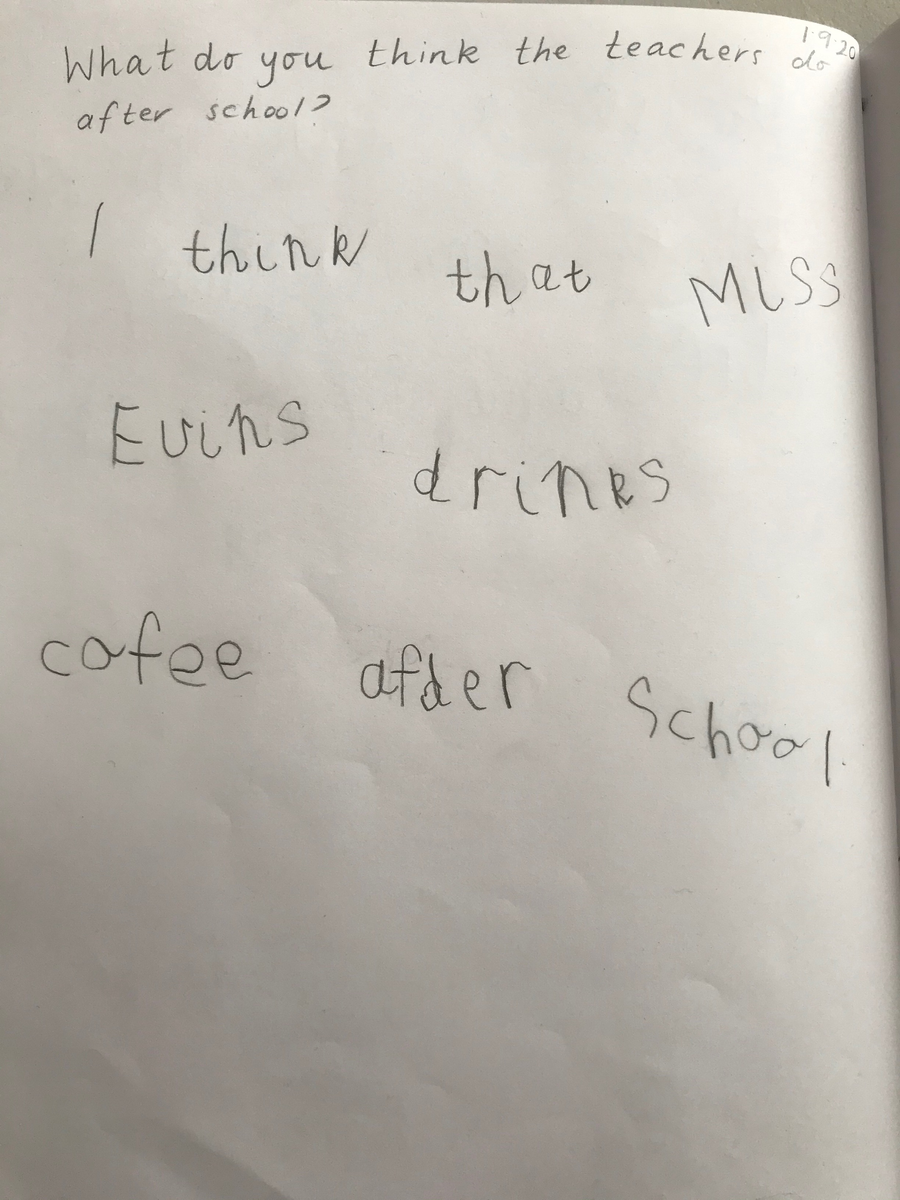 1.9.20
What do you think the teachers do
after school?
I think that Miss
Evins drinks
cofee afder
School.